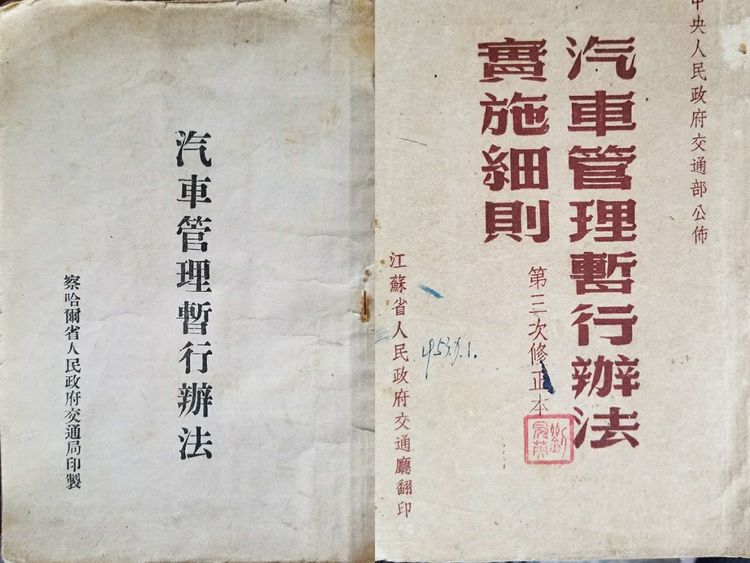 汽車管理暫行辦法
察哈爾省人民政府交通局印製
中央人民政府交通部公佈
汽車管理暫行辦法
實施細則
第三次修正本
江蘇省人民政府交通廳翻印